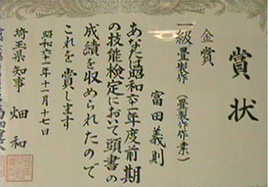 賞状
金賞
一級畳製作(畳製作作業)
富田義則
あなたは昭和六十一年度前期
の技能検定において頭書の
成績を収められたので
これを賞します
昭和六十一年十一月十七日
埼玉県知事 畑和